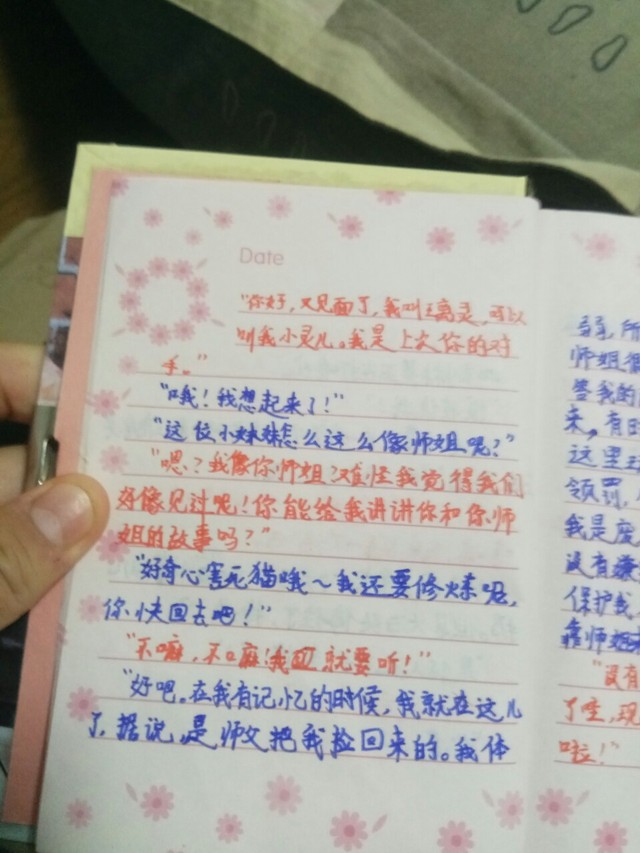 Date
"你好,又见面了,我叫王离灵,可以
叫我小灵儿。我是上次你的对
手。"
"哦!我想起来了!"
"这位小妹妹怎么这么像师姐呢?"
"嗯?我像你师姐?难怪我觉得我们
好像见过呢!你能给我讲讲你和你师
姐的故事吗?"
"好奇心害死猫哦~我还要修炼呢,
你快回去吧!"
"不嘛,不嘛!我就要听!"
"好吧。在我有记忆的时候,我就在这儿
了,据说,是师父把我捡回来的。我体
弱,所
师姐很
答我的
来,有
这里
领罚,
我是废
没有
保护我
靠师姐
"没有
了哇,现
啦!"